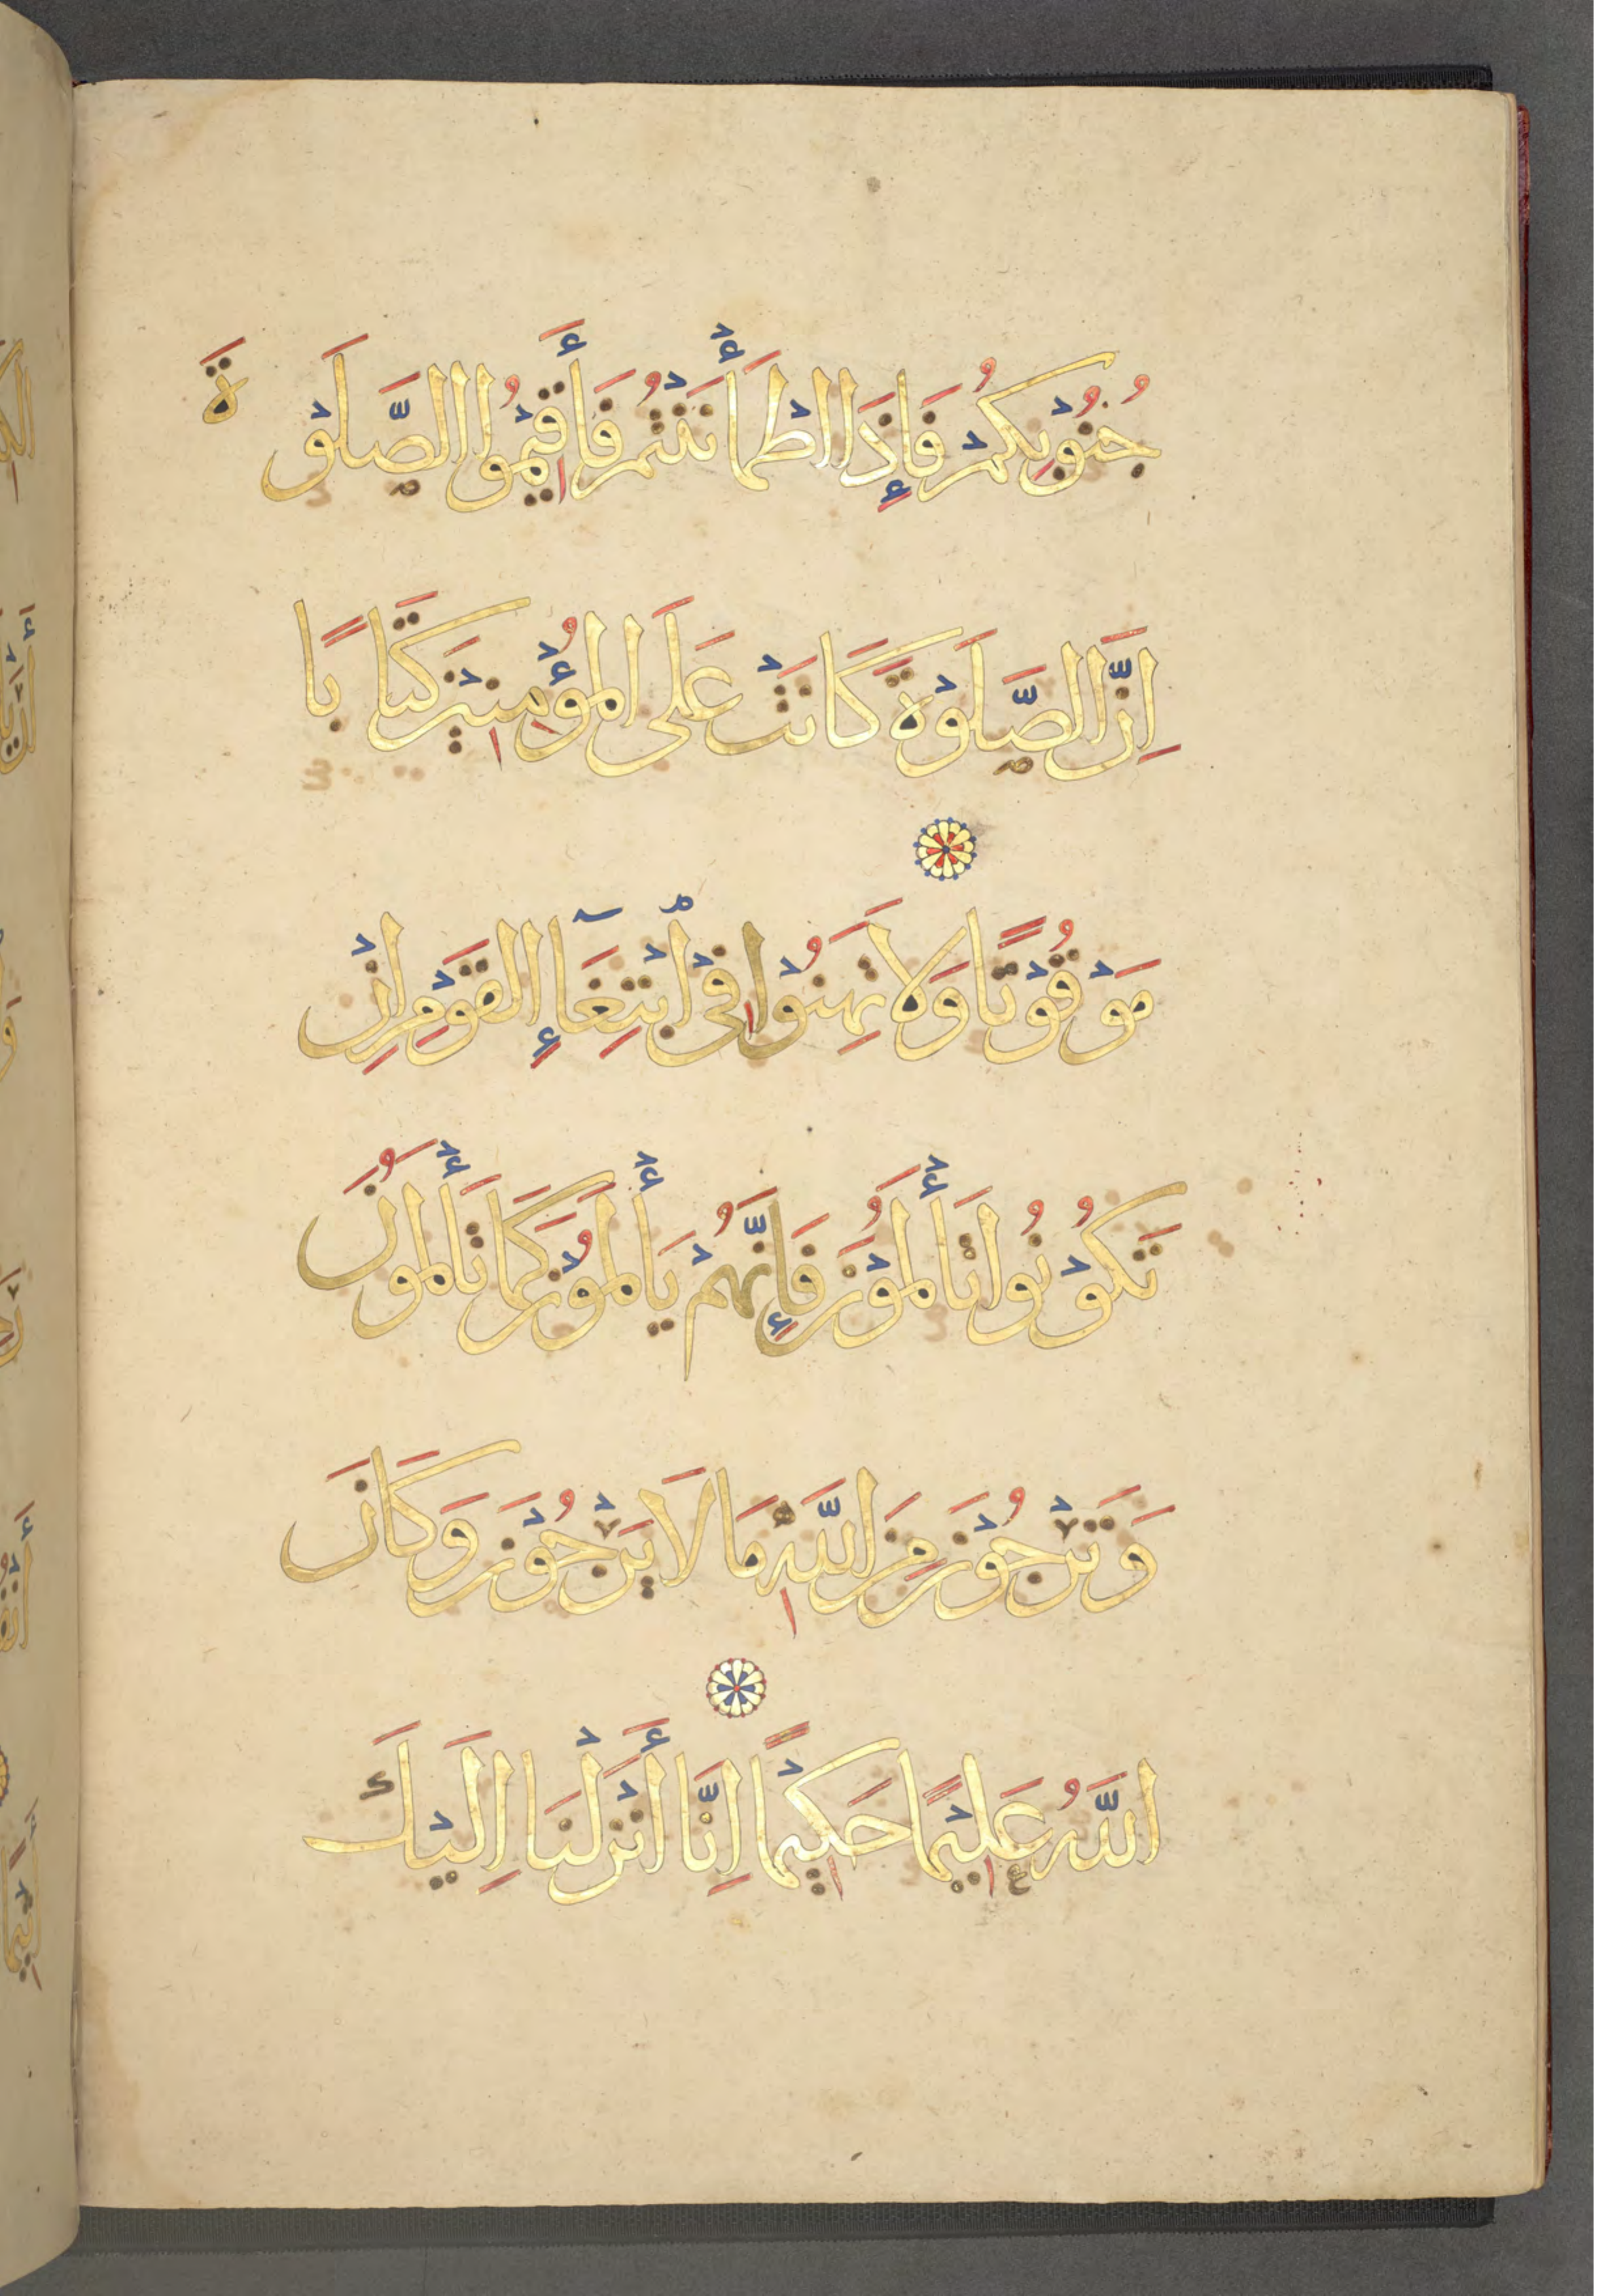 جُنُوْبِكُمْ فَإِذَا اطْمَأْنَنْتُمْ فَأَقِيْمُوا الصَّلَوْةَ
اِنَّ الصَّلَوْةَ كَانَتْ عَلَى الْمُؤْمِنِيْنَ كِتَابًا
مَوْقُوْتًا وَلَا تَهِنُوْا فِيْ ٱبْتِغَآءِ الْقَوْمِ اِنْ
تَكُوْنُوا تَأْلَمُوْنَ فَإِنَّهُمْ يَأْلَمُوْنَ كَمَا تَأْلَمُوْنَ
وَتَرْجُوْنَ مِنَ اللَّهِ مَا لَا يَرْجُوْنَ وَكَانَ
اللَّهُ عَلِيْمًا حَكِيْمًا اِنَّا أَنْزَلْنَا اِلَيْكَ